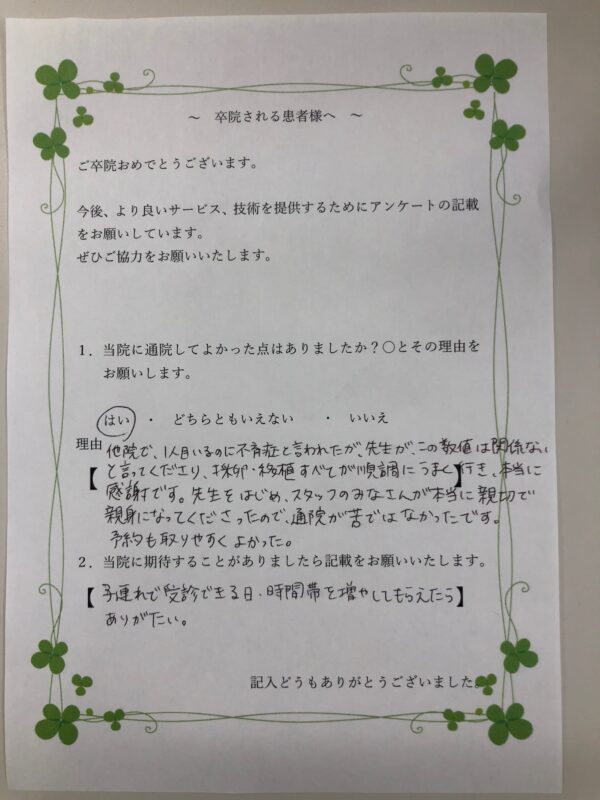 ～ 卒院される患者様へ ～
ご卒院おめでとうございます。
今後、より良いサービス、技術を提供するためにアンケートの記載
をお願いしています。
ぜひご協力をお願いいたします。
1．当院に通院してよかった点はありましたか？〇とその理由を
お願いします。
はい ・ どちらともいえない ・ いいえ
理由 他院で、1人目いるのに不育症と言われたが、先生が、この数値は関係ない
【と言ってくださり、採卵・移植すべてが順調にうまく行き、本当に】
感謝です。先生をはじめ、スタッフのみなさんが本当に親切で
親身になってくださったので、通院が苦ではなかったです。
予約も取りやすくよかった。
2．当院に期待することがありましたら記載をお願いいたします。
【子連れで受診できる日・時間帯を増やしてもらえたら】
ありがたい。
記入どうもありがとうございました。